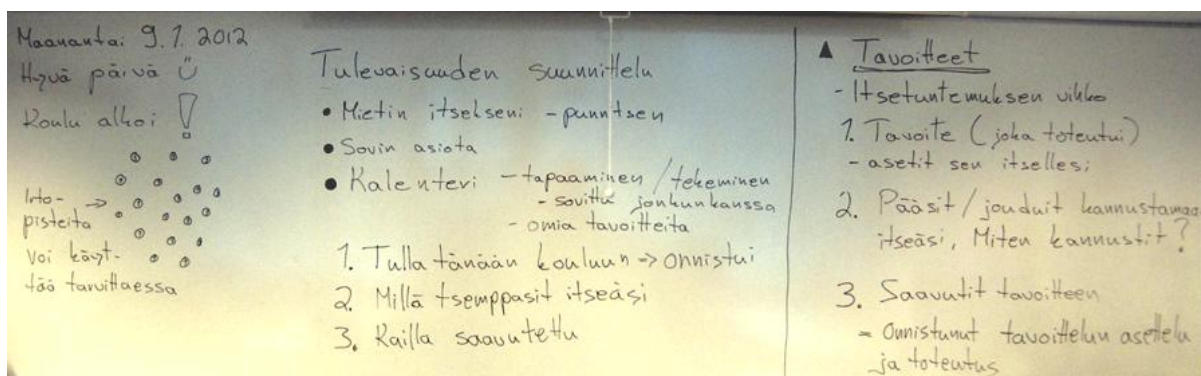 Maanantai 9.1.2012
Hyvä päivä ü
Koulu alkoi !
Irto-
pisteitä
voi käyt-
tää tarvittaessa
Tulevaisuuden suunnittelu
• Mietin itsekseni - punntsen
• Sovin asiota
• Kalenteri - tapaaminen / tekeminen
- sovittu jonkunkanssa
- omia tavoitteita
1. Tulla tänään kouluun -> onnistui
2. Millä tsemppasit itseäsi
3. Kailla saavutettu
▲ Tavoitteet
- Itsetuntemuksen vihko
1. Tavoite (joka toteutui)
- asetit sen itselles;
2. Pääsit / jouduit kannustamaa
itseäsi, Miten kannustit?
3. Saavutit tavoitteen
= Onnistunut tavoittelun asettelu
ja toteutus